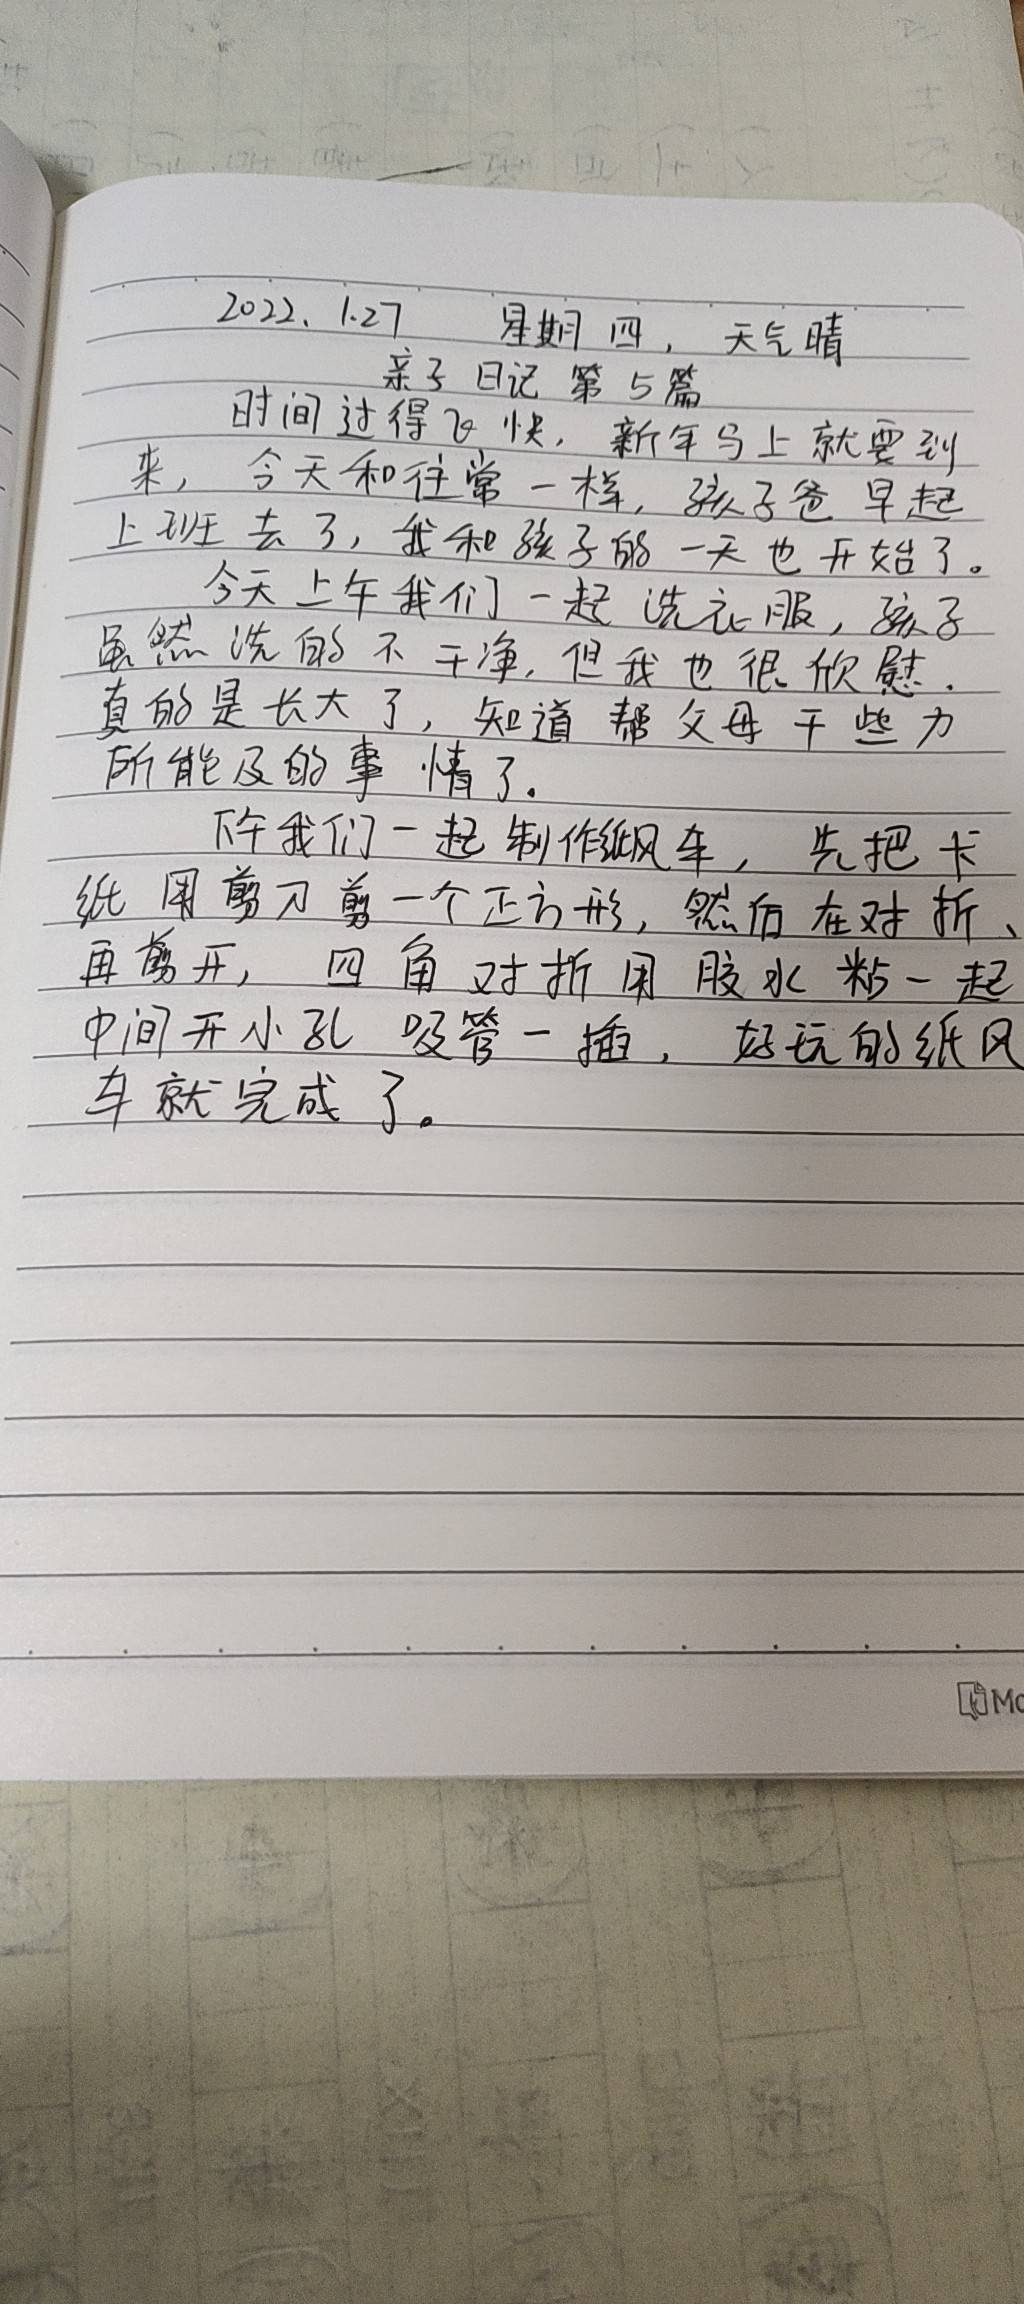 2022、1.27 星期四，天气晴
亲子日记 第5篇
时间过得飞快，新年马上就要到
来，今天和往常一样，孩子爸早起
上班去了，我和孩子的一天也开始了。
今天上午我们一起洗衣服，孩子
虽然洗的不干净，但我也很欣慰．
真的是长大了，知道帮父母干些力
所能及的事情了．
下午我们一起制作纸风车，先把卡
纸用剪刀剪一个正方形，然后在对折、
再剪开，四角对折用胶水粘一起
中间开小孔 吸管一插，好玩的纸风
车就完成了。
Mo